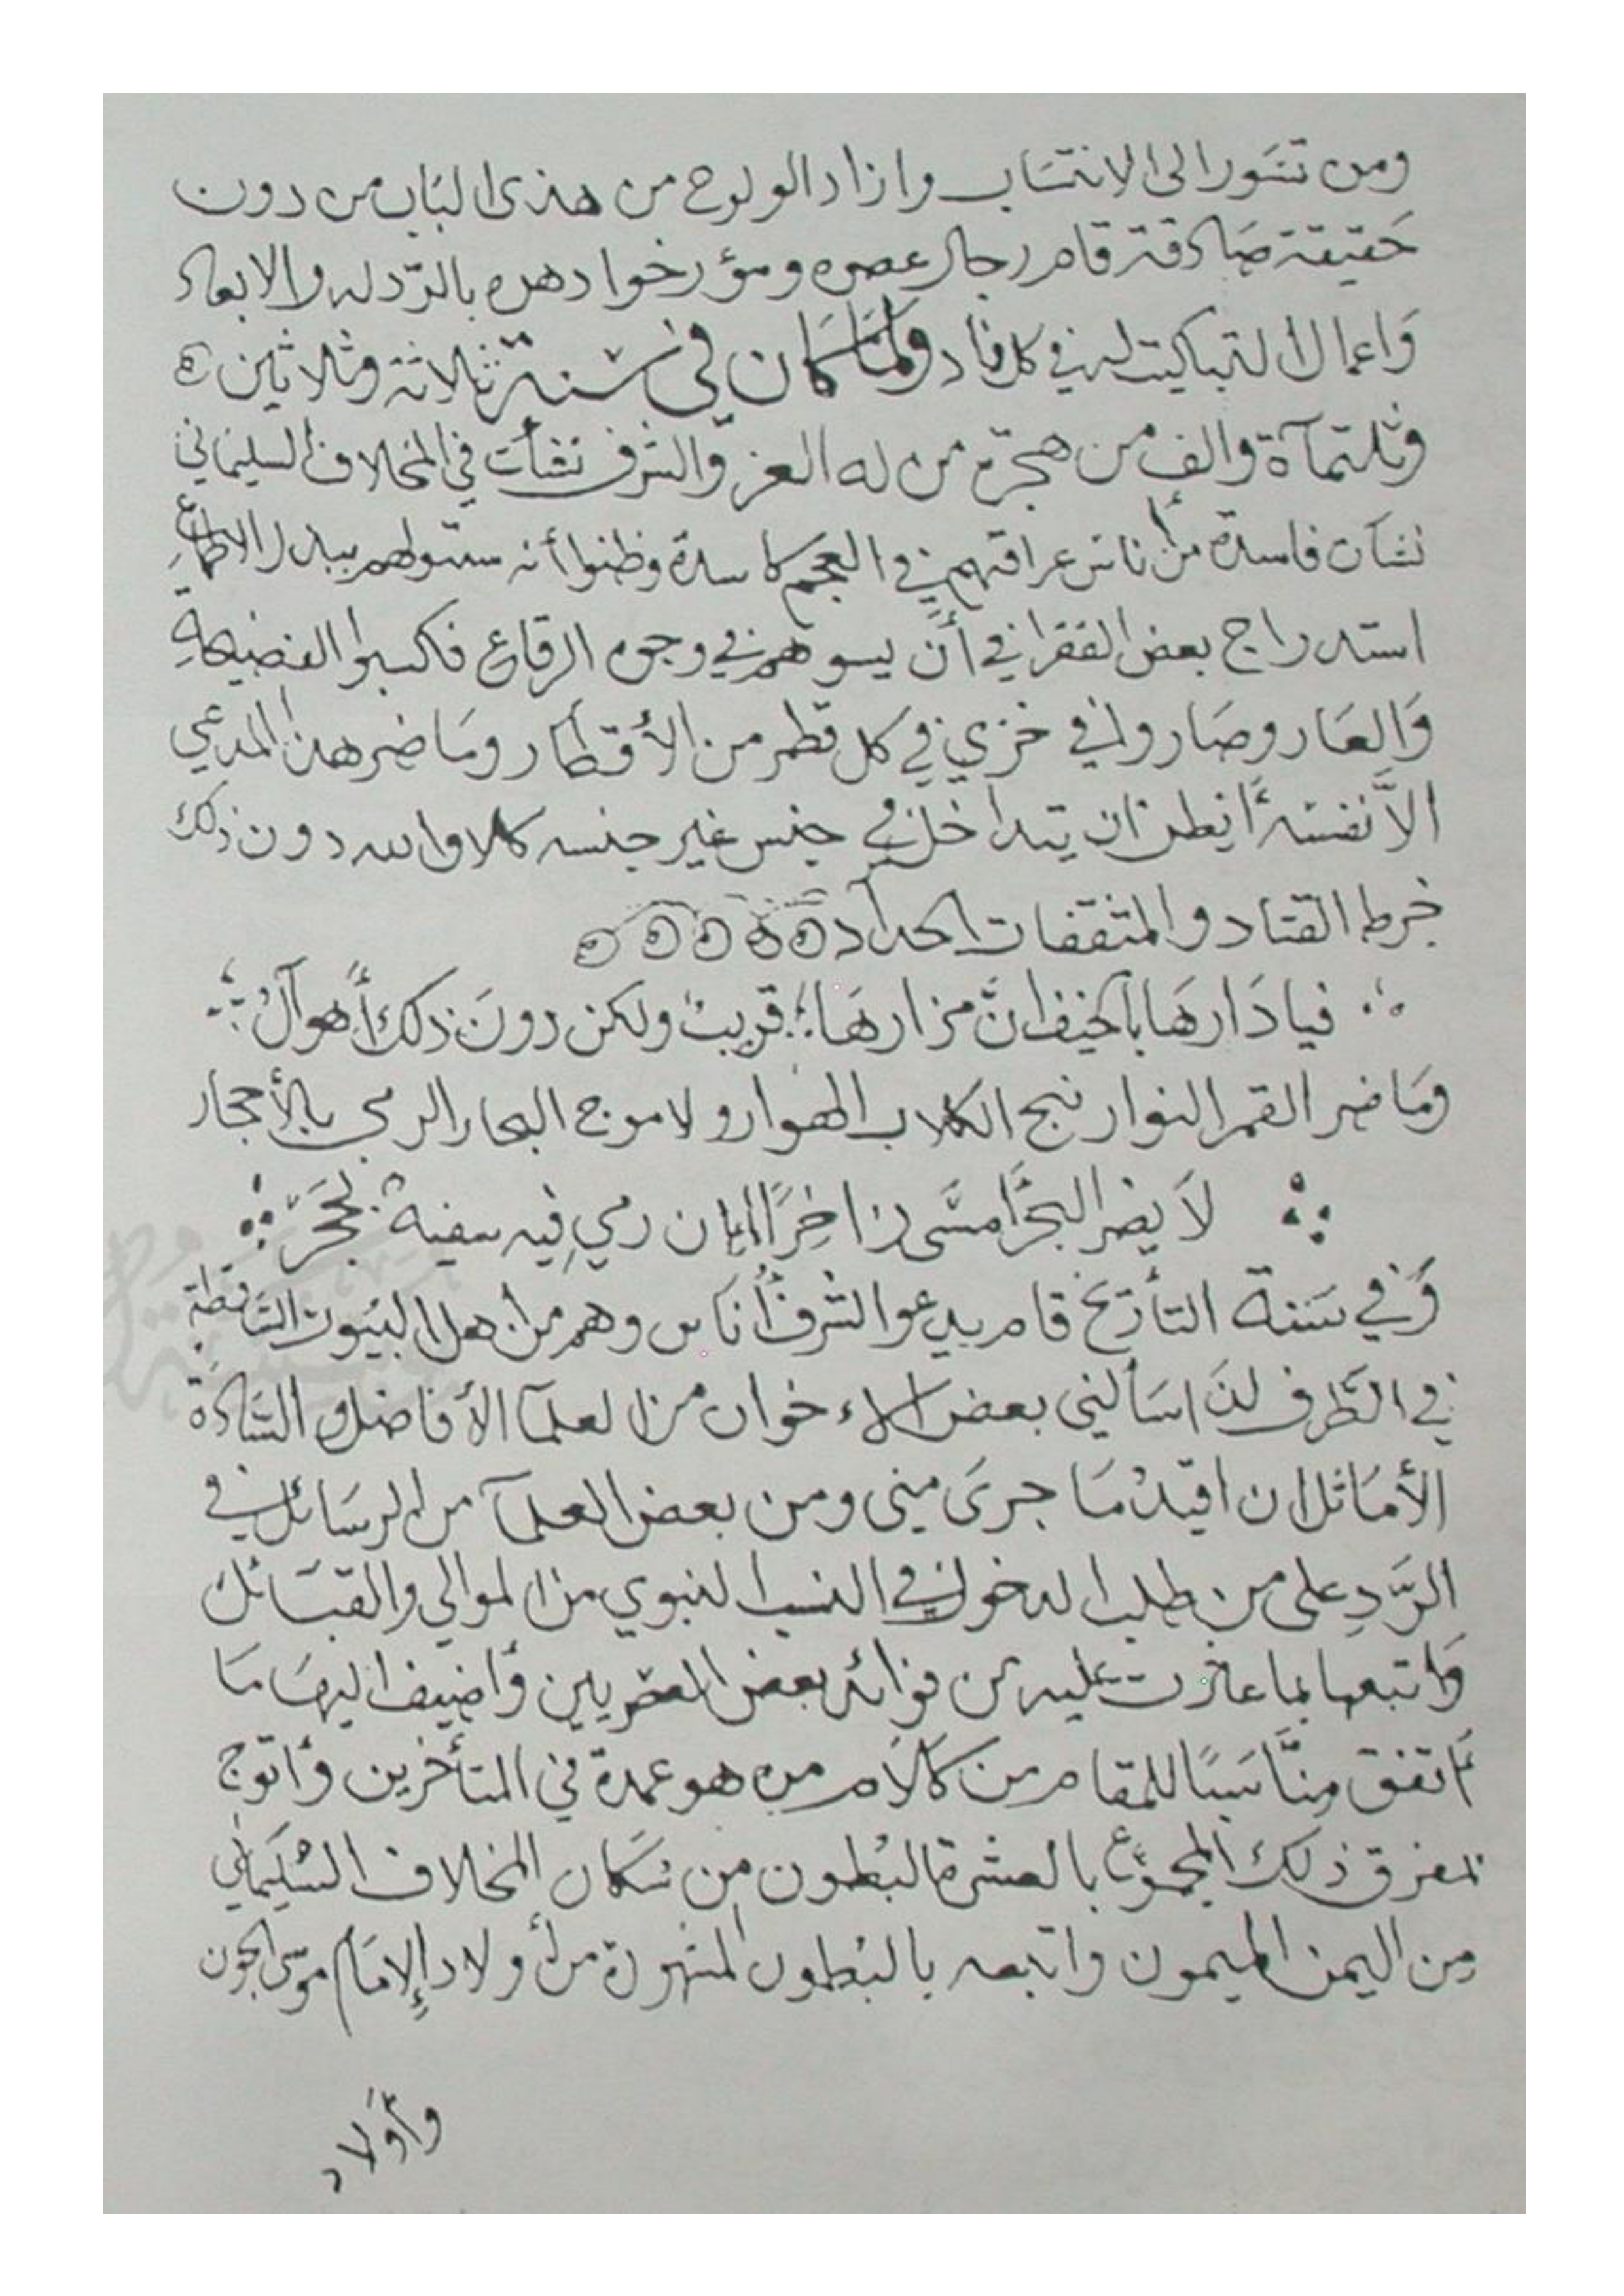 ومن تسور الى الانتساب واراد الولوج من هذى الباب من دون
حقيقة صادقة قام رجال عصره ومؤرخوا دهره بالرد له والابعاد
واعمال التبكيت له في كل ناد ولما كان في سنة ثلاثة وثلاثين
وثلثمآة والف من هجرة من له العز والشرف نشأت في المخلاف السليماني
نشآت فاسدة من أناس عراقتهم في العجم كاسدة وظنوا أنه سيتم لهم ببذل الاطماع
استدراج بعض الفقرا في أن يسوهم في وجوه الرقاع فاكسبوا الفضيحة
والعار وصاروا في خزي في كل قطر من الأقطار وما ضر هذا المدعي
الا نفسه أيظن ان يتداخل في جنس غير جنسه كلا والله دون ذلك
خرط القتاد والمثقفات الحداد
فيا دارها بالخيف ان مزارها قريب ولكن دون ذلك أهوال
وما ضر القمر النوار نبح الكلاب الهوار ولا موج البحار الرمي بالأحجار
لا يضر البحر أمسى زاخرًا ان رمي فيه سفيه بحجر
وفي سنة التأريخ قام يدعو الشرف أناس وهم من اهل البيوت الساقطة
في الطرف لذا سألني بعض الاخوان من العلمآ الأفاضل والسادة
الأماثل ان اقيد ما جرى مني ومن بعض العلمآ من الرسائل في
الرد على من طلب الدخول في النسب النبوي من الموالي والقبائل
واتبعها بما عثرت عليه من فوائد بعض العصريين وأضيف اليها ما
اتفق مناسبًا للمقام من كلام من هو عمدة في المتأخرين وأتوج
مفرق ذلك المجموع بالعشرة البطون من سكان المخلاف السليماني
من اليمن الميمون واتبعه بالبطون المشهورة من أولاد الإمام موسى الجون
وأولاد